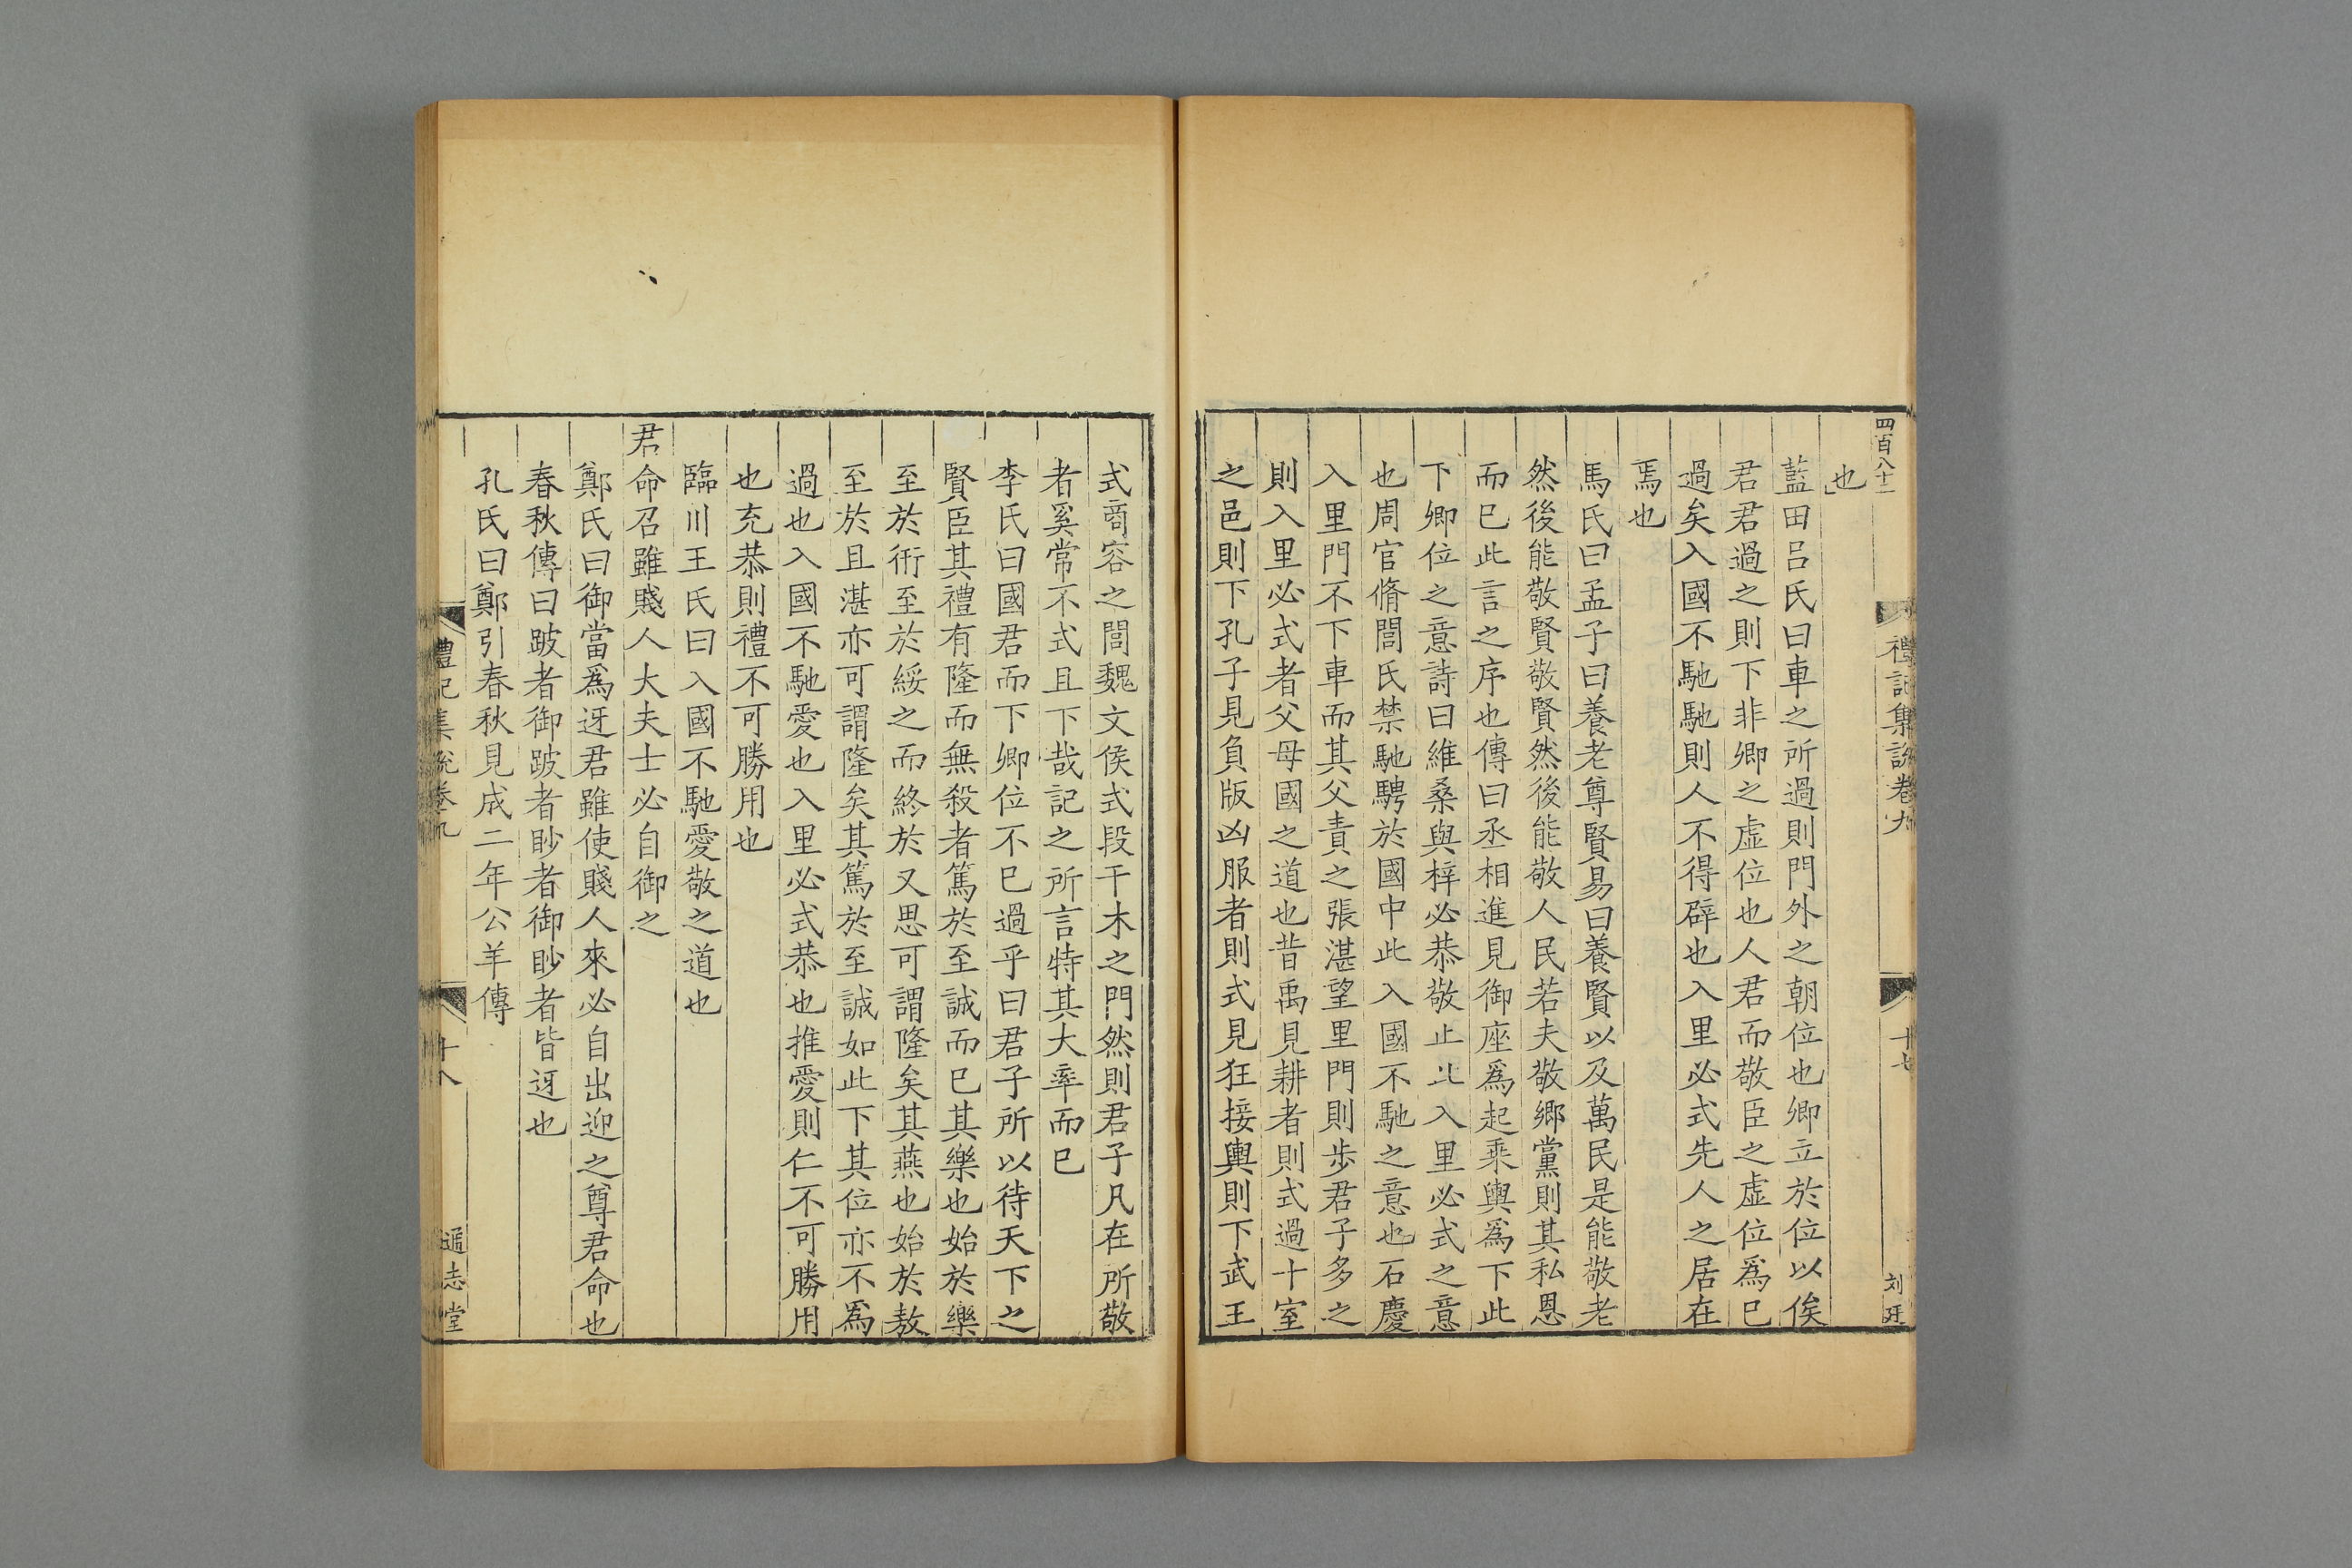 四百八十二
禮記集説卷九
十七
刘珏
也
藍田吕氏曰車之所過則門外之朝位也卿立於位以俟
君君過之則下非卿之虚位也人君而敬臣之虚位爲已
過矣入國不馳馳則人不得辟也入里必式先人之居在
焉也
馬氏曰孟子曰養老尊賢易曰養賢以及萬民是能敬老
然後能敬賢敬賢然後能敬人民若夫敬鄉黨則其私恩
而已此言之序也傳曰丞相進見御座爲起乘輿爲下此
下卿位之意詩曰維桑與梓必恭敬止此入里必式之意
也周官脩閭氏禁馳騁於國中此入國不馳之意也石慶
入里門不下車而其父責之張湛望里門則歩君子多之
則入里必式者父母國之道也昔禹見耕者則式過十室
之邑則下孔子見負版凶服者則式見狂接輿則下武王
式商容之閭魏文侯式段干木之門然則君子凡在所敬
者奚常不式且下哉記之所言特其大率而已
李氏曰國君而下卿位不已過乎曰君子所以待天下之
賢臣其禮有隆而無殺者篤於至誠而已其樂也始於樂
至於衎至於綏之而終於又思可謂隆矣其燕也始於敖
至於且湛亦可謂隆矣其篤於至誠如此下其位亦不爲
過也入國不馳愛也入里必式恭也推愛則仁不可勝用
也充恭則禮不可勝用也
臨川王氏曰入國不馳愛敬之道也
君命召雖賤人大夫士必自御之
鄭氏曰御當爲迓君雖使賤人來必自出迎之尊君命也
春秋傳曰跛者御跛者眇者御眇者皆迓也
孔氏曰鄭引春秋見成二年公羊傳
禮記集説卷九
十八
通志堂